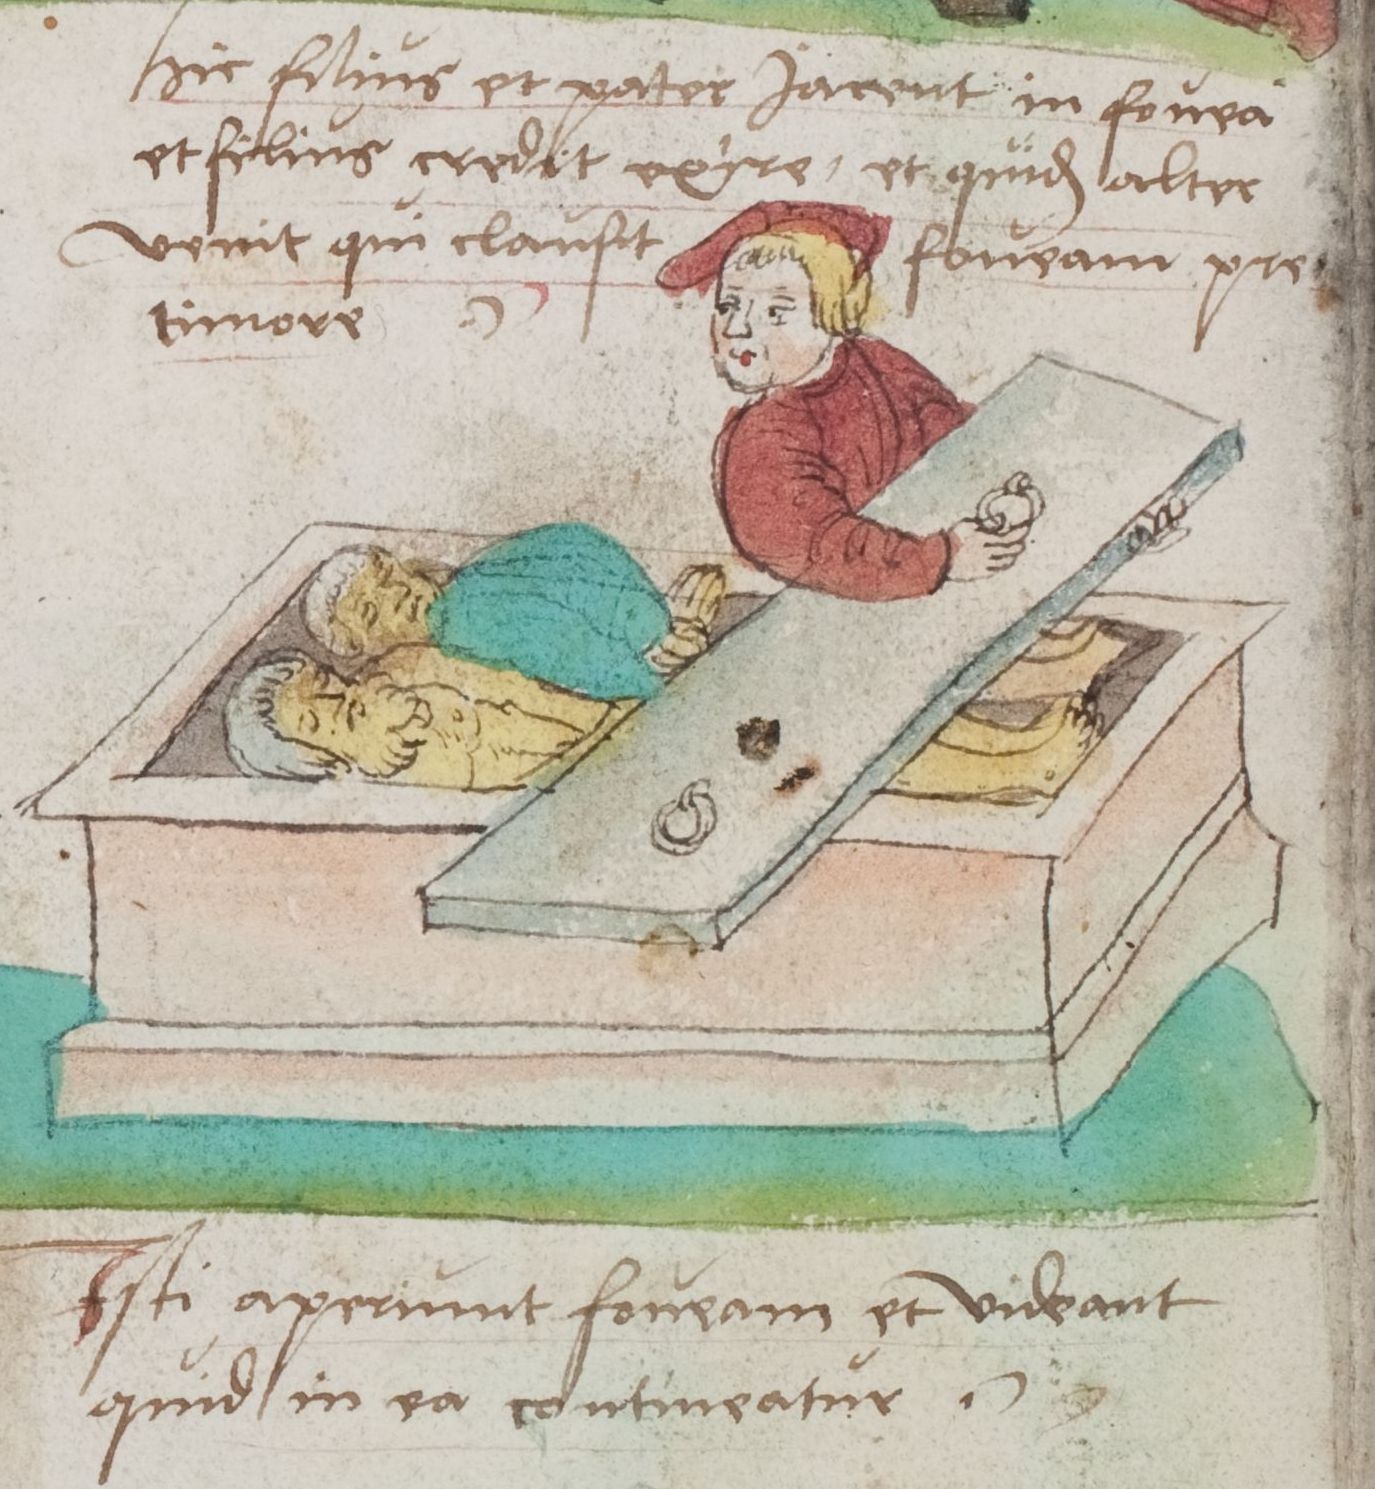 hic filius et pater Jacent in fovea
et filius credit exire, et quidam alter
venit qui clausit foveam pre
timore
Isti aperiunt foveam et videant
quid in ea contineatur